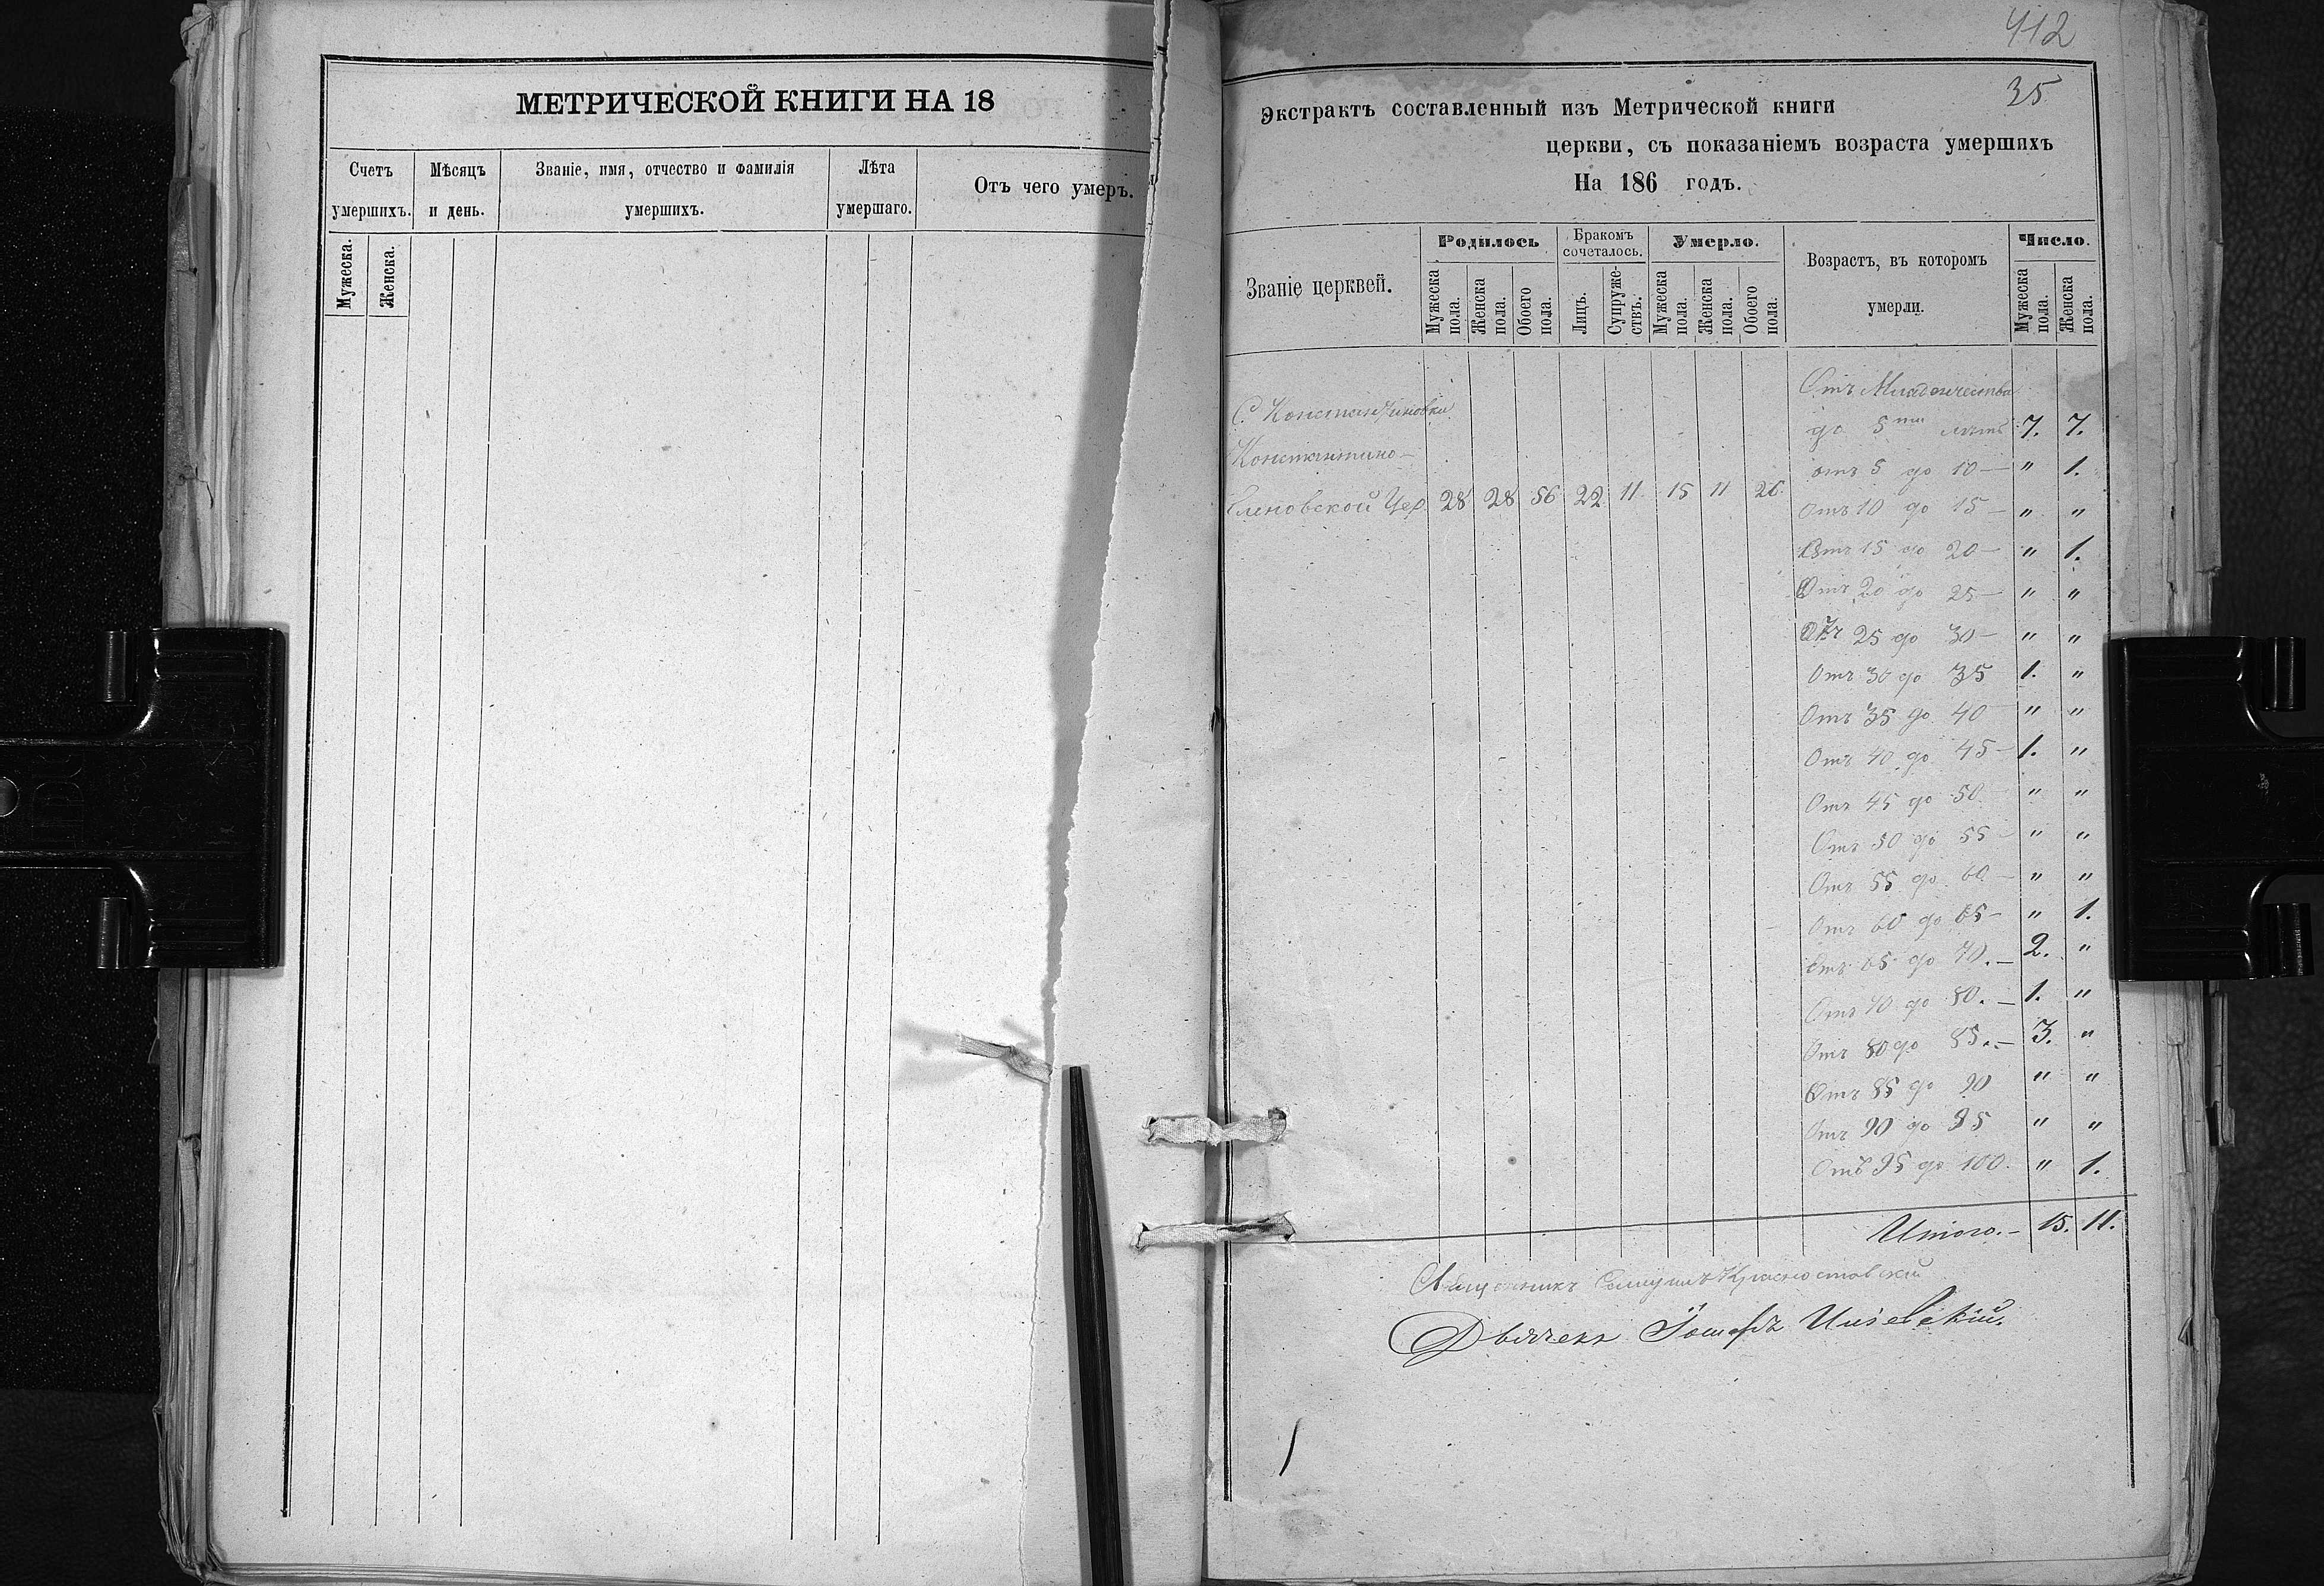 МЕТРИЧЕСКОЙ КНИГИ НА 18
Счетъ умершихъ.
Мѣсяцъ и день.
Званіе, имя, отчество и фамилія умершихъ.
Лѣта умершаго.
Отъ чего умеръ.
Мужеска.
Женска.
412
35
Экстрактъ составленный изъ Метрической книги
церкви, съ показаніемъ возраста умершихъ
На 186 годъ.
Званіе церквей.
Родилось
Бракомъ сочеталось.
Умерло.
Возрастъ, въ которомъ умерли.
Число.
Мужеска пола.
Женска пола.
Обоего пола.
Лицъ.
Супружествъ.
Мужеска пола.
Женска пола.
Обоего пола.
Мужеска пола.
Женска пола.
С. Константиновки
Константино-
Еленовской Цер. 28 28 56 22 11. 15 11 26.
Отъ Младенчества
до 5ти лѣтъ 7. 7.
отъ 5 до 10 — " 1.
Отъ 10 до 15 — " "
Отъ 15 до 20 — " 1.
Отъ 20 до 25 — " "
Отъ 25 до 30 — " "
Отъ 30 до 35 1. "
Отъ 35 до 40 " "
Отъ 40 до 45 — 1. "
Отъ 45 до 50 " "
Отъ 50 до 55 — " "
Отъ 55 до 60 — " "
Отъ 60 до 65 — " 1.
Отъ 65 до 70. — 2. "
Отъ 70 до 80. — 1. "
Отъ 80 до 85. — 3. "
Отъ 85 до 90 " "
Отъ 90 до 95 " "
Отъ 95 до 100. " 1.
Итого. — 15. 11.
Священникъ Самуилъ Красноставскій
Дьячекъ Іосифъ